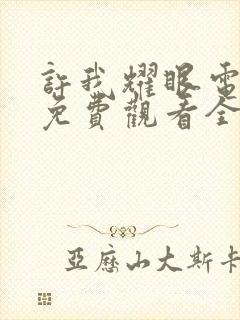 許我耀眼電
免費觀看全
亞歷山大斯卡